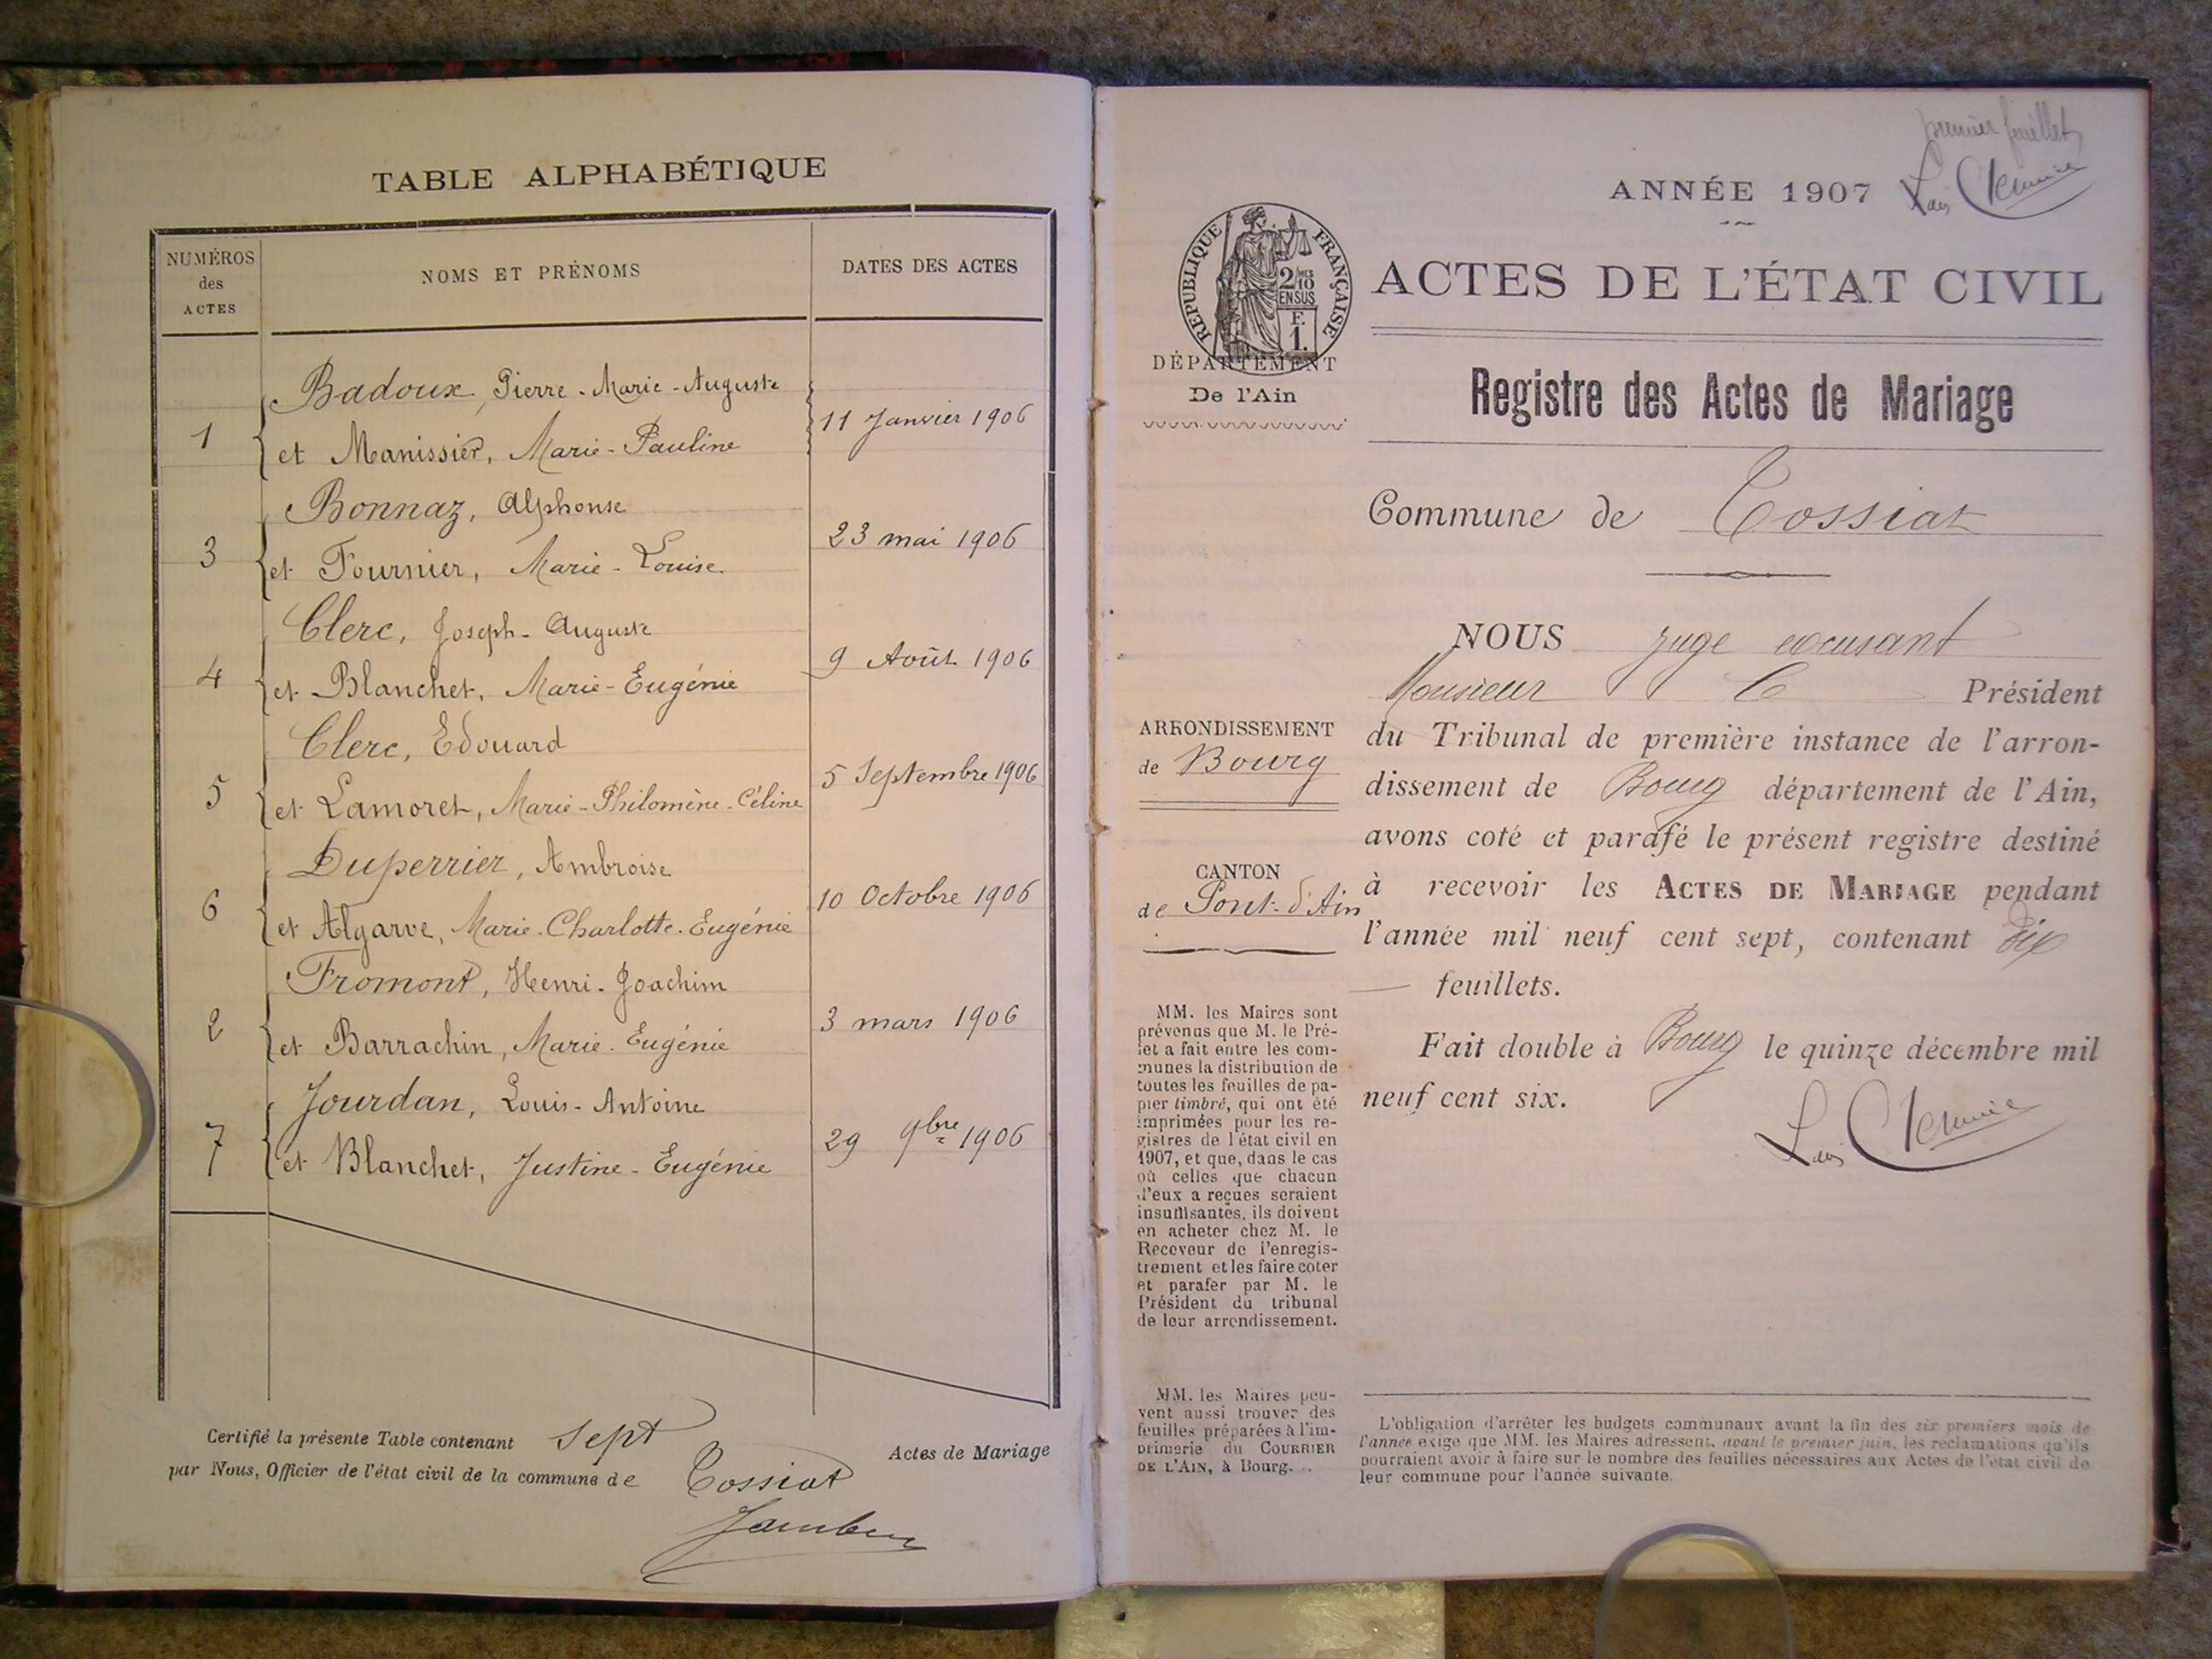 TABLE ALPHABÉTIQUE
NUMÉROS
des
ACTES
NOMS ET PRÉNOMS
DATES DES ACTES
Badoux, Pierre-Marie-Auguste
1
et Manissier, Marie-Pauline
11 Janvier 1906
Bonnaz, Alphonse
3
et Fournier, Marie-Louise
23 mai 1906
Clerc, Joseph-Auguste
4
et Blanchet, Marie-Eugénie
9 Août 1906
Clerc, Edouard
5
et Lamoret, Marie-Philomène-Céline
5 Septembre 1906
Duperrier, Ambroise
6
et Algarve, Marie-Charlotte-Eugénie
10 Octobre 1906
Fromont, Henri-Joachim
2
et Barrachin, Marie-Eugénie
3 mars 1906
Jourdan, Louis-Antoine
7
et Blanchet, Justine-Eugénie
29 9bre 1906
Certifié la présente Table contenant sept Actes de Mariage
par Nous, Officier de l'état civil de la commune de Tossiat
premier feuillet
ANNÉE 1907
RÉPUBLIQUE FRANÇAISE
2/10
EN SUS
F.
1.
ACTES DE L'ÉTAT CIVIL
DÉPARTEMENT
De l'Ain
Registre des Actes de Mariage
Commune de Tossiat
ARRONDISSEMENT
de Bourg
CANTON
de Pont-d'Ain
NOUS juge
Monsieur Président
du Tribunal de première instance de l'arron-
dissement de Bourg département de l'Ain,
avons coté et parafé le présent registre destiné
à recevoir les ACTES DE MARIAGE pendant
l'année mil neuf cent sept, contenant dix
feuillets.
Fait double à Bourg le quinze décembre mil
neuf cent six.
MM. les Maires sont
prévenus que M. le Pré-
fet a fait entre les com-
munes la distribution de
toutes les feuilles de pa-
pier timbré, qui ont été
imprimées pour les re-
gistres de l'état civil en
1907, et que, dans le cas
où celles que chacun
d'eux a reçues seraient
insuffisantes, ils doivent
en acheter chez M. le
Receveur de l'enregis-
trement et les faire coter
et parafer par M. le
Président du tribunal
de leur arrondissement.
MM. les Maires peu-
vent aussi trouver des
feuilles préparées à l'im-
primerie du COURRIER
DE L'AIN, à Bourg.
L'obligation d'arrêter les budgets communaux avant la fin des six premiers mois de
l'année exige que MM. les Maires adressent, avant le premier juin, les réclamations qu'ils
pourraient avoir à faire sur le nombre des feuilles nécessaires aux Actes de l'état civil de
leur commune pour l'année suivante.